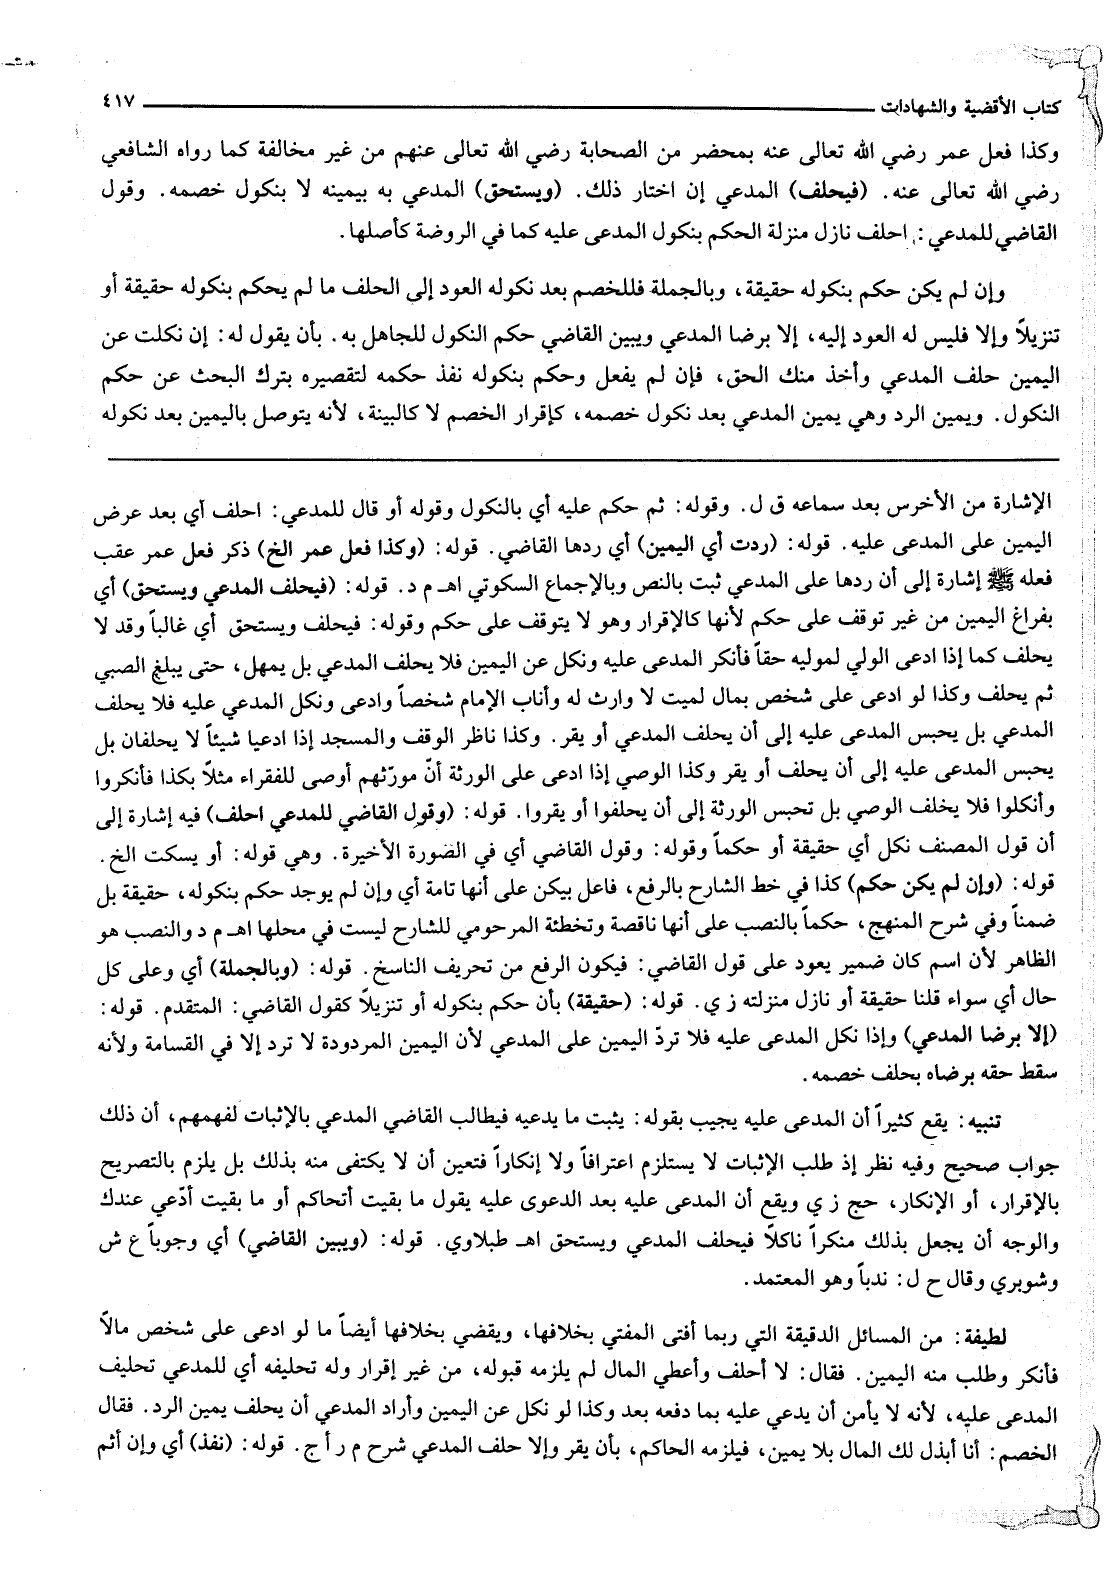 كتاب الأقضية والشهادات ٤١٧
وكذا فعل عمر رضي الله تعالى عنه بمحضر من الصحابة رضي الله تعالى عنهم من غير مخالفة كما رواه الشافعي
رضي الله تعالى عنه. (فيحلف) المدعي إن اختار ذلك. (ويستحق) المدعي به بيمينه لا بنكول خصمه. وقول
القاضي للمدعي: احلف نازل منزلة الحكم بنكول المدعى عليه كما في الروضة كأصلها.
وإن لم يكن حكم بنكوله حقيقة، وبالجملة فللخصم بعد نكوله العود إلى الحلف ما لم يحكم بنكوله حقيقة أو
تنزيلاً وإلا فليس له العود إليه، إلا برضا المدعي ويبين القاضي حكم النكول للجاهل به. بأن يقول له: إن نكلت عن
اليمين حلف المدعي وأخذ منك الحق، فإن لم يفعل وحكم بنكوله نفذ حكمه لتقصيره بترك البحث عن حكم
النكول. ويمين الرد وهي يمين المدعي بعد نكول خصمه، كإقرار الخصم لا كالبينة، لأنه يتوصل باليمين بعد نكوله
الإشارة من الأخرس بعد سماعه ق ل. وقوله: ثم حكم عليه أي بالنكول وقوله أو قال للمدعي: احلف أي بعد عرض
اليمين على المدعى عليه. قوله: (ردت أي اليمين) أي ردها القاضي. قوله: (وكذا فعل عمر الخ) ذكر فعل عمر عقب
فعله ﷺ إشارة إلى أن ردها على المدعي ثبت بالنص وبالإجماع السكوتي اهـ م د. قوله: (فيحلف المدعي ويستحق) أي
بفراغ اليمين من غير توقف على حكم لأنها كالإقرار وهو لا يتوقف على حكم وقوله: فيحلف ويستحق أي غالباً وقد لا
يحلف كما إذا ادعى الولي لموليه حقاً فأنكر المدعى عليه ونكل عن اليمين فلا يحلف المدعي بل يمهل، حتى يبلغ الصبي
ثم يحلف وكذا لو ادعى على شخص بمال لميت لا وارث له وأناب الإمام شخصاً وادعى ونكل المدعي عليه فلا يحلف
المدعي بل يحبس المدعى عليه إلى أن يحلف المدعي أو يقر. وكذا ناظر الوقف والمسجد إذا ادعيا شيئاً لا يحلفان بل
يحبس المدعى عليه إلى أن يحلف أو يقر وكذا الوصي إذا ادعى على الورثة أنّ مورّثهم أوصى للفقراء مثلاً بكذا فأنكروا
وأنكلوا فلا يخلف الوصي بل تحبس الورثة إلى أن يحلفوا أو يقروا. قوله: (وقول القاضي للمدعي احلف) فيه إشارة إلى
أن قول المصنف نكل أي حقيقة أو حكماً وقوله: وقول القاضي أي في الصورة الأخيرة. وهي قوله: أو يسكت الخ.
قوله: (وإن لم يكن حكم) كذا في خط الشارح بالرفع، فاعل بيكن على أنها تامة أي وإن لم يوجد حكم بنكوله، حقيقة بل
ضمناً وفي شرح المنهج، حكماً بالنصب على أنها ناقصة وتخطئة المرحومي للشارح ليست في محلها اهـ م د والنصب هو
الظاهر لأن اسم كان ضمير يعود على قول القاضي: فيكون الرفع من تحريف الناسخ. قوله: (وبالجملة) أي وعلى كل
حال أي سواء قلنا حقيقة أو نازل منزلته ز ي. قوله: (حقيقة) بأن حكم بنكوله أو تنزيلاً كقول القاضي: المتقدم. قوله:
(إلا برضا المدعي) وإذا نكل المدعى عليه فلا تردّ اليمين على المدعي لأن اليمين المردودة لا ترد إلا في القسامة ولأنه
سقط حقه برضاه بحلف خصمه.
تنبيه: يقع كثيراً أن المدعى عليه يجيب بقوله: يثبت ما يدعيه فيطالب القاضي المدعي بالإثبات لفهمهم، أن ذلك
جواب صحيح وفيه نظر إذ طلب الإثبات لا يستلزم اعترافاً ولا إنكاراً فتعين أن لا يكتفى منه بذلك بل يلزم بالتصريح
بالإقرار، أو الإنكار، حج ز ي ويقع أن المدعى عليه بعد الدعوى عليه يقول ما بقيت أتحاكم أو ما بقيت أدّعي عندك
والوجه أن يجعل بذلك منكراً ناكلاً فيحلف المدعي ويستحق اهـ طبلاوي. قوله: (ويبين القاضي) أي وجوباً ع ش
وشوبري وقال ح ل: ندباً وهو المعتمد.
لطيفة: من المسائل الدقيقة التي ربما أفتى المفتي بخلافها، ويقضي بخلافها أيضاً ما لو ادعى على شخص مالاً
فأنكر وطلب منه اليمين. فقال: لا أحلف وأعطي المال لم يلزمه قبوله، من غير إقرار وله تحليفه أي للمدعي تحليف
المدعى عليه، لأنه لا يأمن أن يدعي عليه بما دفعه بعد وكذا لو نكل عن اليمين وأراد المدعي أن يحلف يمين الرد. فقال
الخصم: أنا أبذل لك المال بلا يمين، فيلزمه الحاكم، بأن يقر وإلا حلف المدعي شرح م ر أ ج. قوله: (نفذ) أي وإن أثم